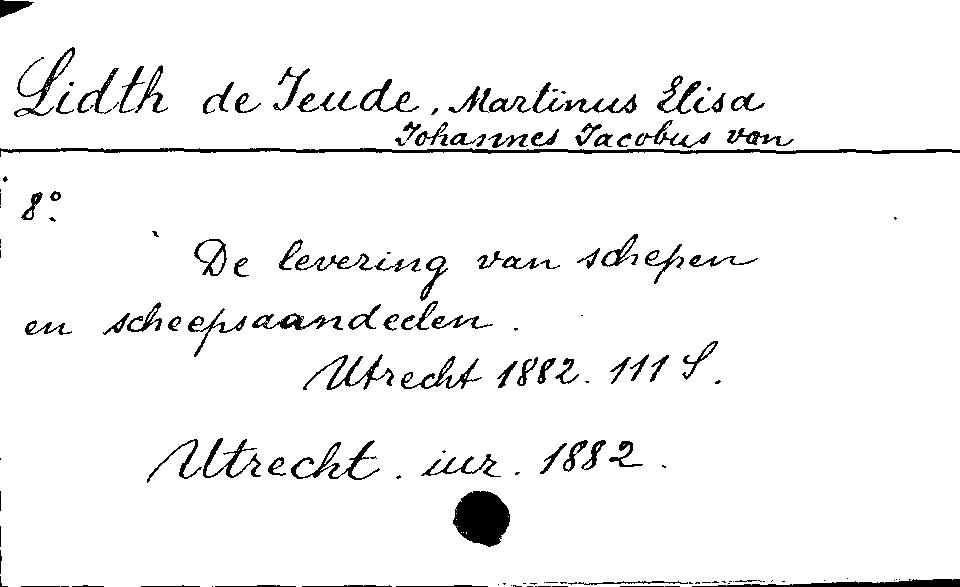 Lidth de Jeude, Martinus Elisa
Johannes Jacobus van
8°.
De levering van schepen
en scheepsaandeelen.
Utrecht 1882. 111 S.
Utrecht. iur. 1882.